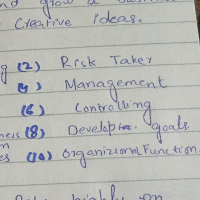 and grow a
Creative ideas.
g (2) Risk Taker
(4) Management
(6) Controlling
(8) Develop goals
es (10) Organizional Function